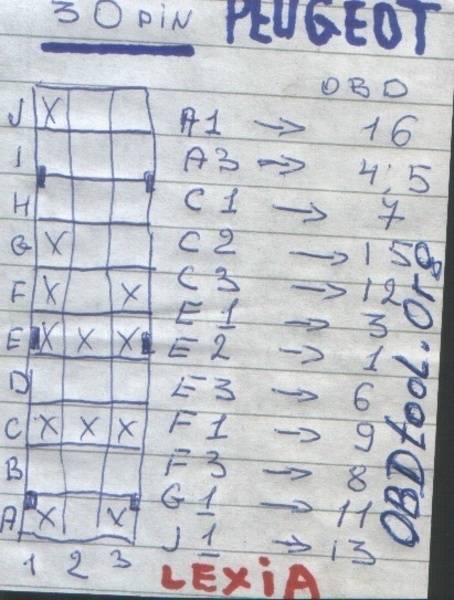 30 PIN PEUGEOT
OBD
J X A1 → 16
I A3 → 4; 5
H C1 → 7
G X C2 → 15
F X X C3 → 12
E1 → 3
E X X X E2 → 1
D E3 → 6
C X X X F1 → 9
B F3 → 8
G1 → 11
A X X J1 → 13
1 2 3
LEXIA
OBDtool.org